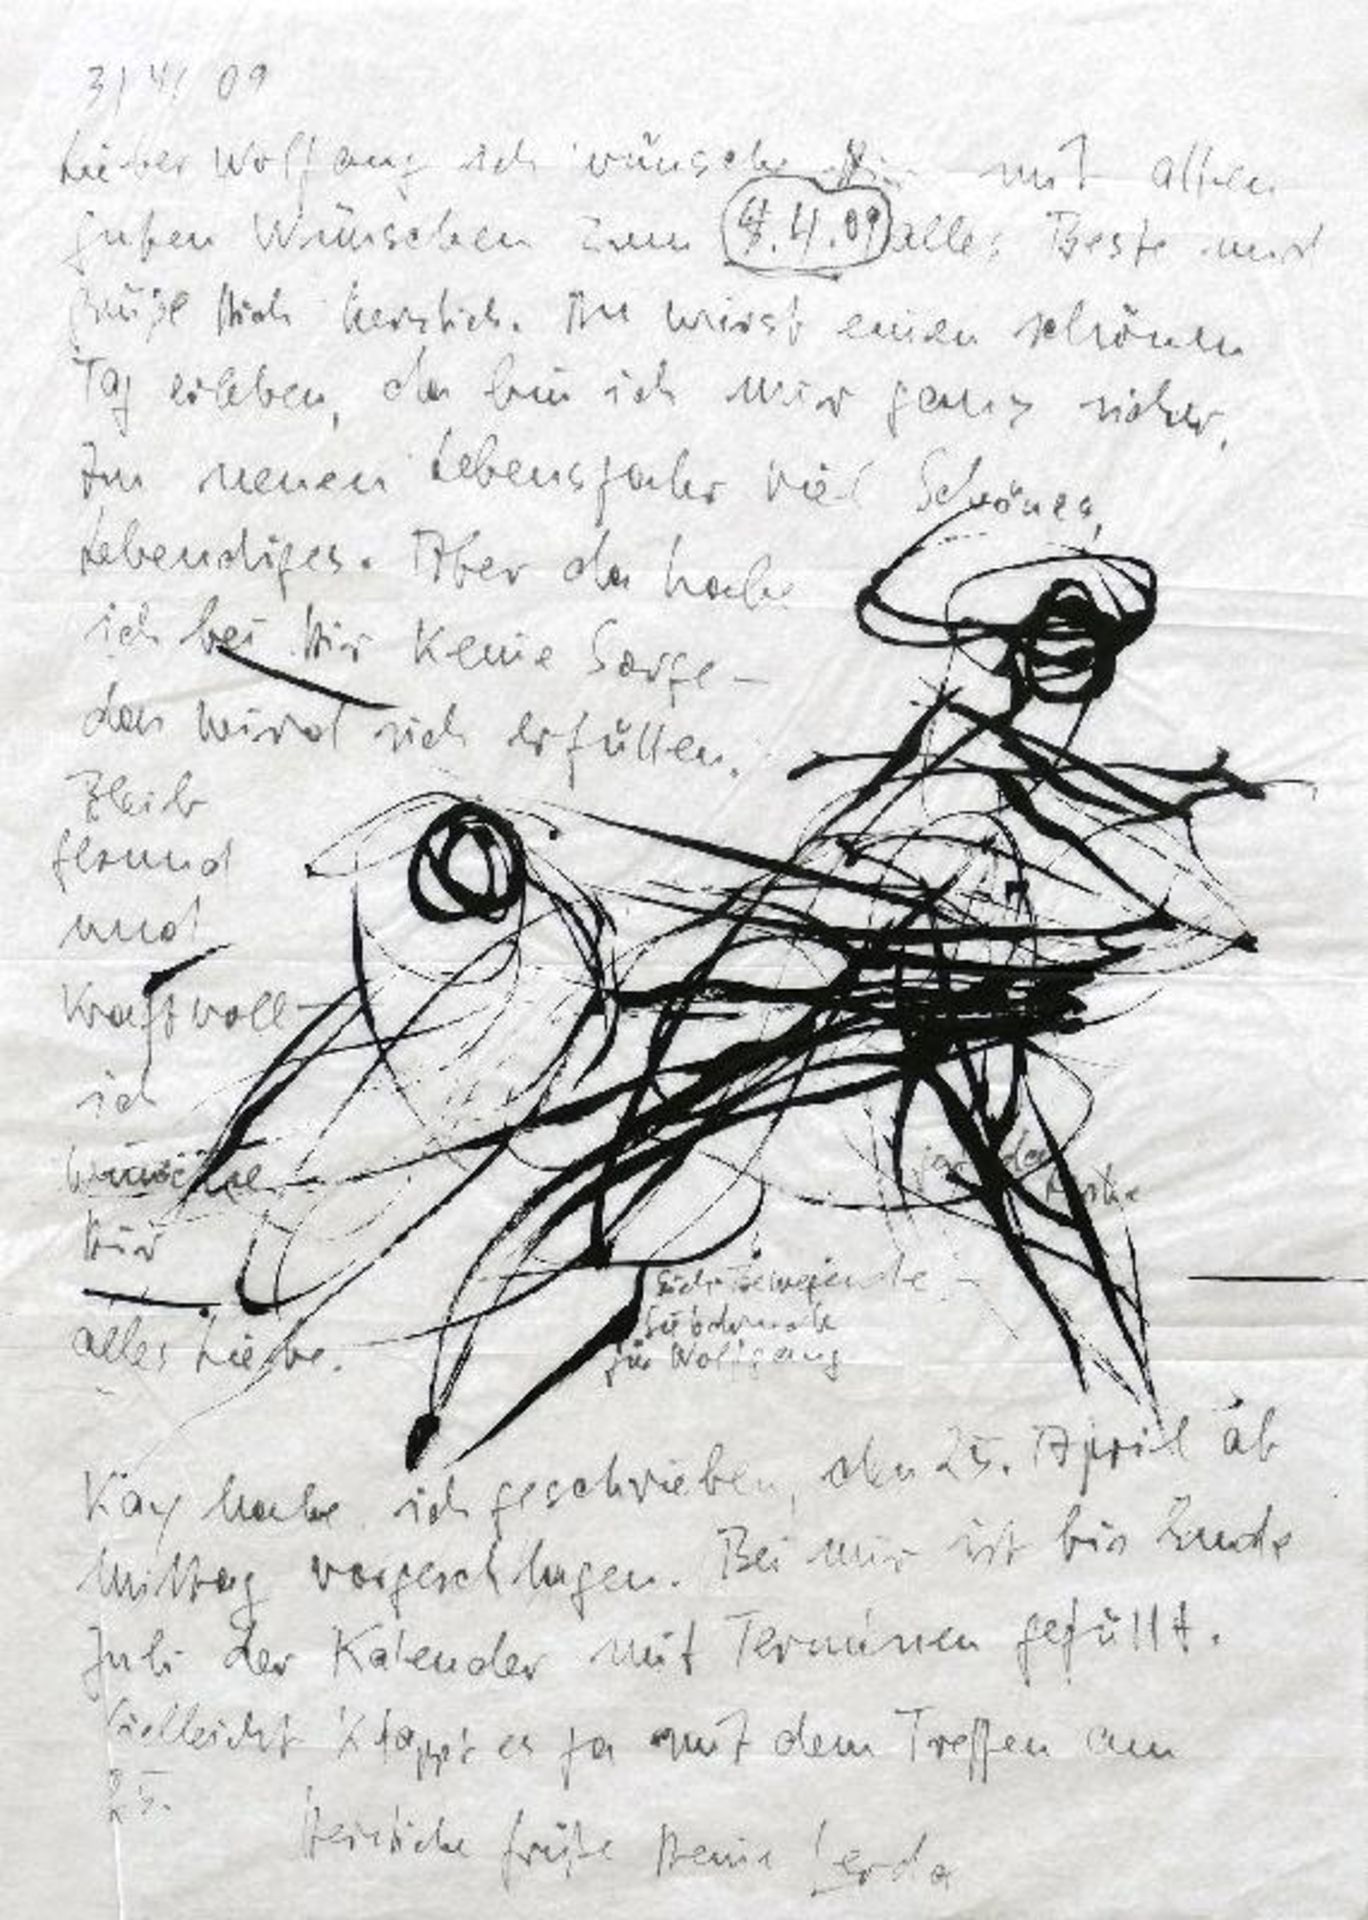 3/4/09
Lieber Wolfgang ich wünsche Dir mit allen
guten Wünschen zum 4.4.09 alles Beste und
grüße Dich herzlich. Du wirst einen schönen
Tag erleben, da bin ich mir ganz sicher.
Im neuen Lebensjahr viel Schönes,
Lebendiges. Aber da habe
ich bei Dir keine Sorge –
das wird sich erfüllen.
Bleib
gesund
und
kraftvoll –
ich
wünsche
Dir
alles Liebe.
sich Bewegende
für Wolfgang
Kay habe ich geschrieben, den 25. April ab
Mittag vorgeschlagen. Bei mir ist bis Ende
Juli der Kalender mit Terminen gefüllt.
Vielleicht klappt es ja mit dem Treffen am
25.
Herzliche Grüße Deine Gerda